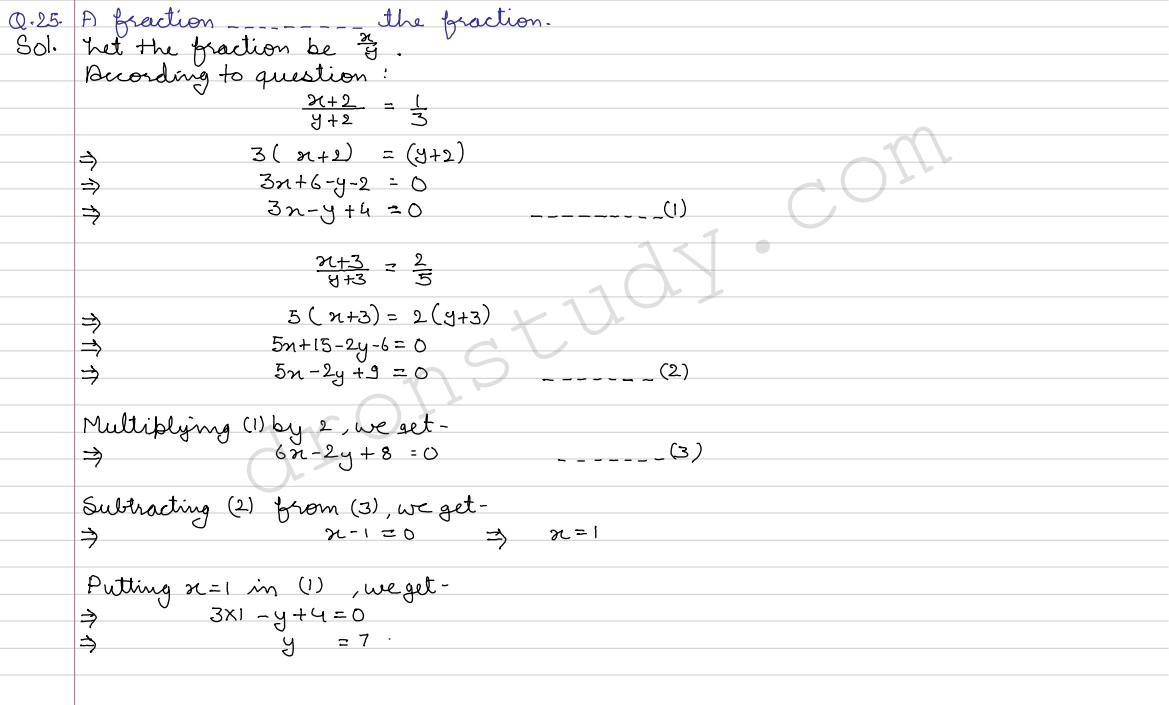 Q.25. A fraction _________ the fraction.
Sol. Let the fraction be x/y .
According to question :
(x+2)/(y+2) = 1/3
⇒ 3( x+2) = (y+2)
⇒ 3x+6-y-2 = 0
⇒ 3x-y+4 = 0 _________(1)
(x+3)/(y+3) = 2/5
⇒ 5(x+3) = 2(y+3)
⇒ 5x+15-2y-6=0
⇒ 5x-2y+9 = 0 _______(2)
Multiplying (1) by 2, we get-
⇒ 6x-2y+8 =0 _______(3)
Subtracting (2) from (3), we get-
⇒ x-1=0 ⇒ x=1
Putting x=1 in (1) , we get-
⇒ 3×1 -y+4=0
⇒ y = 7
dronstudy.com